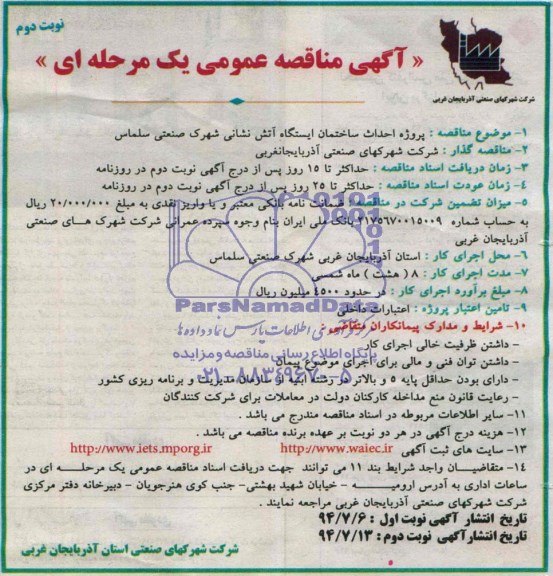 نوبت دوم
« آگهی مناقصه عمومی یک مرحله ای »
شرکت شهرکهای صنعتی آذربایجان غربی
۱- موضوع مناقصه : پروژه احداث ساختمان ایستگاه آتش نشانی شهرک صنعتی سلماس
۲- مناقصه گذار : شرکت شهرکهای صنعتی آذربایجانغربی
۳- زمان دریافت اسناد مناقصه : حداکثر تا ۱۵ روز پس از درج آگهی نوبت دوم در روزنامه
۴- زمان عودت اسناد مناقصه : حداکثر تا ۲۵ روز پس از درج آگهی نوبت دوم در روزنامه
۵- میزان تضمین شرکت در مناقصه : ضمانت نامه بانکی معتبر و یا واریز نقدی به مبلغ ۲۰/۰۰۰/۰۰۰ ریال
به حساب شماره ۲۱۷۵۶۷۰۰۱۵۰۰۹ بانک ملی ایران بنام وجوه سپرده عمرانی شرکت شهرک هــای صنعتی
آذربایجان غربی
۶- محل اجرای کار : استان آذربایجان غربی شهرک صنعتی سلماس
۷- مدت اجرای کار : ۸ ( هشت ) ماه شمسی
۸- مبلغ برآورد اجرای کار : در حدود ۴۵۰۰ میلیون ریال
۹- تامین اعتبار پروژه : اعتبارات داخلی
۱۰- شرایط و مدارک پیمانکاران متقاضی :
- داشتن ظرفیت خالی اجرای کار
- داشتن توان فنی و مالی برای اجرای موضوع پیمان
- دارای بودن حداقل پایه ۵ و بالاتر در رشته ابنیه از سازمان مدیریت و برنامه ریزی کشور
- رعایت قانون منع مداخله کارکنان دولت در معاملات برای شرکت کنندگان
۱۱- سایر اطلاعات مربوطه در اسناد مناقصه مندرج می باشد .
۱۲- هزینه درج آگهی در هر دو نوبت بر عهده برنده مناقصه می باشد .
۱۳- سایت های ثبت آگهی http://www.waiec.ir http://www.iets.mporg.ir
۱۴- متقاضیــان واجد شرایط بند ۱۱ می توانند جهت دریافت اسناد مناقصه عمومی یک مرحلــه ای در
ساعات اداری به آدرس ارومیــه - خیابان شهید بهشتی- جنب کوی هنرجویان - دبیرخانه دفتر مرکزی
شرکت شهرکهای صنعتی آذربایجان غربی مراجعه نمایند .
تاریخ انتشار آگهی نوبت اول : ۹۴/۷/۶
تاریخ انتشارآگهی نوبت دوم : ۹۴/۷/۱۳
شرکت شهرکهای صنعتی استان آذربایجان غربی
ParsNamadData
پایگاه اطلاع رسانی مناقصه و مزایده
۰۲۱-۸۸۳۴۹۶۷۰-۵